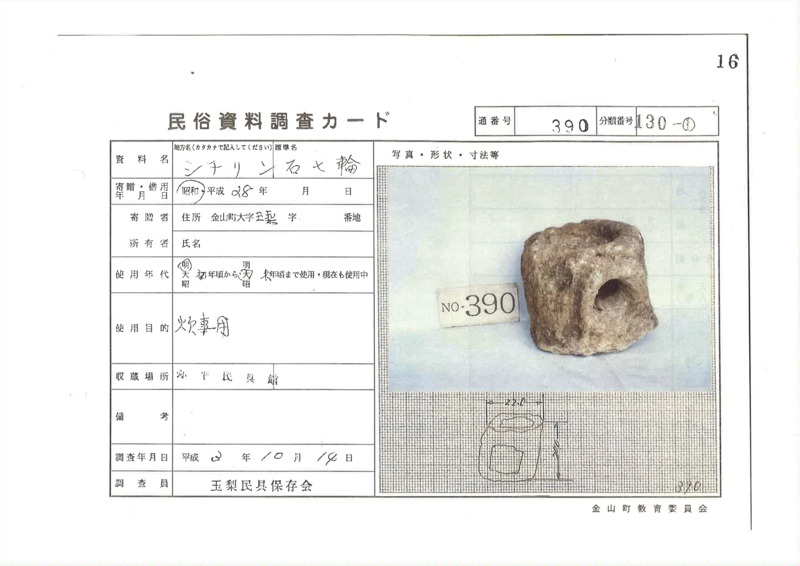 16
民俗資料調査カード
通番号 390 分類番号 130-①
資料名 地方名(カタカナで記入してください) 標準名
シチリン 石七輪
写真・形状・寸法等
寄贈・借用年月日 昭和・平成 28年 月 日
寄贈者 住所 金山町大字玉梨字 番地
所有者 氏名
使用年代 明大昭 初年頃から 明大昭 末年頃まで使用・現在も使用中
使用目的 炊事用
NO-390
収蔵場所 平民具館
備考
22.0
調査年月日 平成 2年 10月 14日
調査員 玉梨民具保存会
390
金山町教育委員会